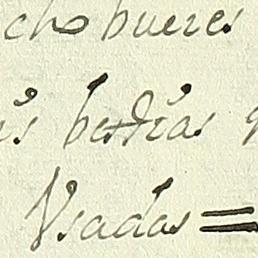 cho bueres
s bestias
Vsadas =